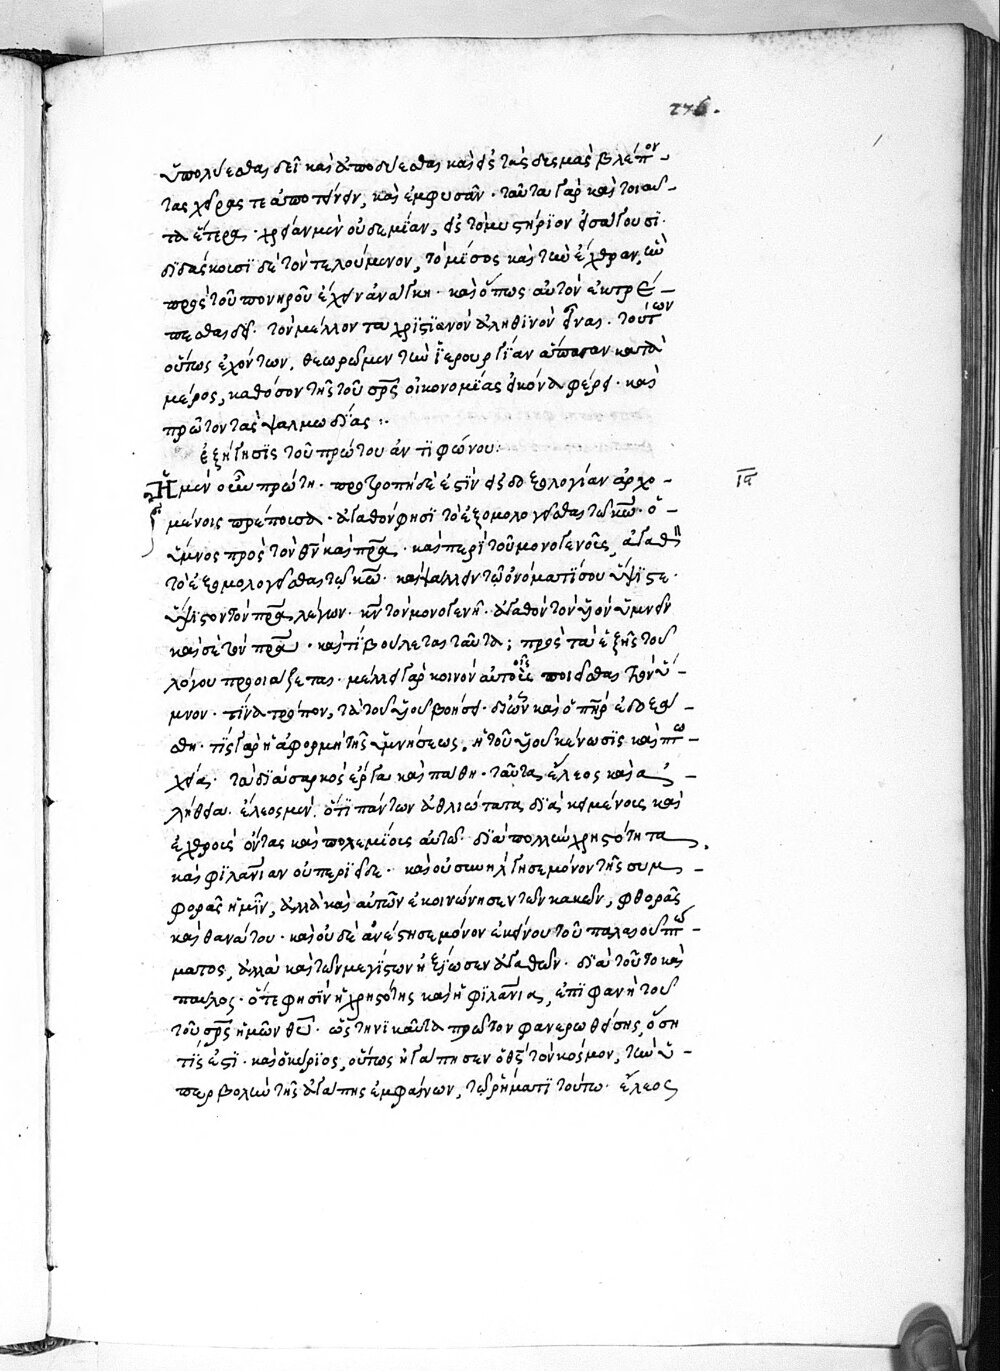 276.
ὑπολύεσθαι δεῖ καὶ ἀποδύεσθαι καὶ εἰς τὰς δυσμὰς βλέπον-
τας χεῖρας τε ἀποτείνειν, καὶ ἐμφυσᾶν· ταῦτα γὰρ καὶ τοιαῦ-
τα ἕτερα· χρείαν μὲν οὐδεμίαν, εἰς τὸ μυστήριον εἰσάγουσι·
διδάσκουσι δὲ τὸν τελούμενον, τὸ μῖσος καὶ τὴν ἔχθραν, ἣν
πρὸς τοῦ πονηροῦ ἔχειν ἀνάγκη· καὶ ὅπως αὐτὸν ἐκτρέ-
πεσθαι δεῖ· τὸν μέλλοντα χριστιανὸν ἀληθινὸν εἶναι. τούτων
οὕτως ἐχόντων, θεωρῶμεν τὴν ἱερουργίαν ἅπασαν κατὰ
μέρος, καθόσον τῆς τοῦ σρς οἰκονομίας εἰκόνα φέρει· καὶ
πρῶτον τὰς ψαλμωδίας :·
ἐξήγησις τοῦ πρώτου ἀντιφώνου:
Ἡ μὲν οὖν πρώτη· προτροπὴ δέ ἐστιν εἰς δοξολογίαν ἀρχο-
ια
μένοις πρέπουσα· ἀγαθὸν φησὶ τὸ ἐξομολογεῖσθαι τῶ κω· ὁ
ὕμνος πρὸς τὸν θν καὶ πρα· καὶ περὶ τοῦ μονογενοῦς, ἀγαθὸν
τὸ ἐξομολογεῖσθαι τῶ κω· καὶ ψάλλειν τῶ ὀνόματί σου ὕψιστε·
ὕψιστον τὸν πρα λέγων· κν τὸν μονογενῆ· ἀγαθὸν τὸν υἱὸν ὑμνεῖν
καὶ σὲ τὸν πρα· καὶ τί βούλεται ταῦτα; πρὸς τὰ ἑξῆς τοῦ
λόγου προοιμιάζεται· μέλλει γὰρ κοινὸν αὐτοῖς ποιεῖσθαι τὸν ὕ-
μνον· τίνα τρόπον, τὰ τοῦ υἱοῦ βοήσει· δι' ὧν καὶ ὁ πηρ ἐδοξά-
σθη· τίς γὰρ ἡ ἀφορμὴ τῆς ὑμνήσεως, ἡ τοῦ υἱοῦ κένωσις καὶ πτω-
χεία· τὰ διὰ σαρκὸς ἔργα καὶ πάθη· ταῦτα, ἔλεος καὶ ἀ-
λήθεια· ἔλεος μὲν. ὅτι πάντων ἀθλιώτατα διακειμένους καὶ
ἐχθροὺς ὄντας καὶ πολεμίους αὐτῶ· διὰ πολλὴν χρηστότητα
καὶ φιλανίαν οὐ περιεῖδε· καὶ οὐ συνήλγησε μόνον τῆς συμ-
φορᾶς ἡμῖν, ἀλλὰ καὶ αὐτῶν ἐκοινώνησεν τῶν κακῶν, φθορᾶς
καὶ θανάτου· καὶ οὐδὲ ἀνέστησε μόνον ἐκείνου τοῦ παλαιοῦ πτώ-
ματος, ἀλλὰ καὶ τῶν μεγίστων ἠξίωσεν ἀγαθῶν· διὰ τοῦτο καὶ
παῦλος· ὅτε φησὶν ἡ χρηστότης καὶ ἡ φιλανία, ἐπιφανῆ τοῦ
τοῦ σρς ἡμῶν θυ· ὡς τηνικαῦτα πρῶτον φανερωθείσης, ὅση
τίς ἐστι· καὶ ὁ κύριος, οὕτως ἠγάπησεν ὁ θς τὸν κόσμον, τὴν ὑ-
περβολὴν τῆς ἀγάπης ἐμφαίνων, τῶ ῥήματι τούτω· ἔλεος